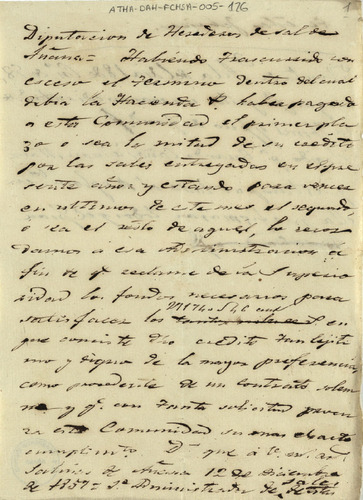 ATHA-DAH-FCMSA-005-176
1
Diputacion de Herederos de sal de
Añana = Habiendo trascurrido con
esceso el termino dentro del cual
debia la Hacienda P. haber pagado
a esta Comunidad el primer pla
zo o sea la mitad de su credito
por las sales entregadas en el pre
sente año, y estando para vencer
en ultimos de este mes el segundo
o sea el resto de aquel, lo recor
damos a esa Administracion a
fin de q.e reclame de la Superio
ridad los fondos necesarios para
satisfacer los
en
que consiste dho credito tan lejiti
mo y digno de la mayor preferencia,
como procedente de un contrato solem
ne y q.e con tanta solicitud
esta Comunidad su mas exacto
cumplimto D. que á V. m. an.
Salinas de Añana 12 de Diciembre
de 1857 = Sr Administrador de